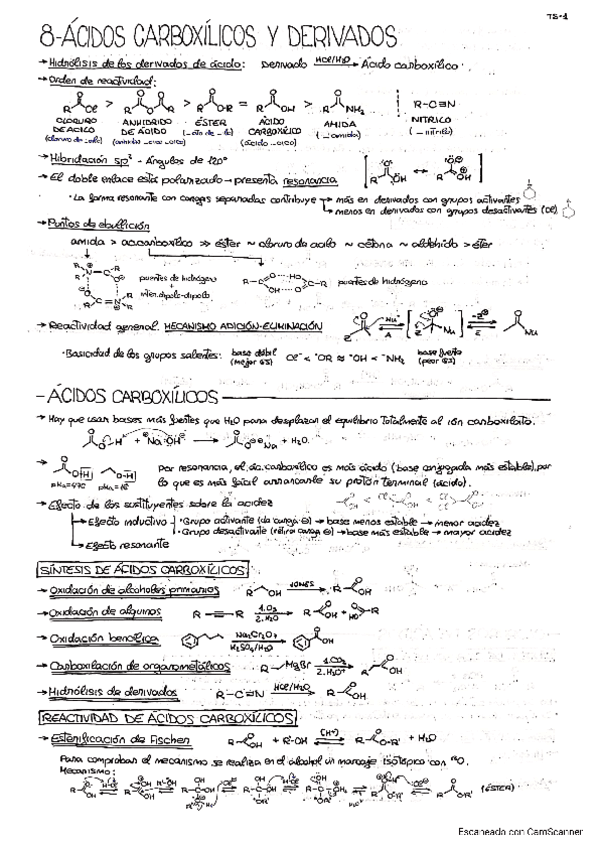 T8-1
8-ÁCIDOS CARBOXÍLICOS Y DERIVADOS
→ Hidrólisis de los derivados de ácido: Derivado HCl/H₂O → Ácido carboxílico.
→ Orden de reactividad:
R Cl > R O R > R O-R = R OH > R NH₂ R-C≡N
CLORURO DE ACILO ANHIDRIDO DE ÁCIDO ÉSTER ÁCIDO CARBOXÍLICO AMIDA NITRILO
(cloruro de -oilo) (-ato de -ilo) (ácido -oico) (-amida) (-nitrilo)
→ Hibridación sp² - Ángulos de 120°
→ El doble enlace está polarizado → presenta resonancia
· La forma resonante con cargas separadas contribuye → más en derivados con grupos activantes
→ menos en derivados con grupos desactivantes (Cl)
→ Puntos de ebullición
amida > ac. carboxílico >> éster ~ cloruro de acilo ~ cetona ~ aldehído > éter
puentes de hidrógeno + inter. dipolo-dipolo
puentes de hidrógeno
→ Reactividad general. MECANISMO ADICIÓN-ELIMINACIÓN
· Basicidad de los grupos salientes: base débil (mejor GS) Cl⁻ < ⁻OR ≈ ⁻OH < ⁻NH₂ base fuerte (peor GS)
- ÁCIDOS CARBOXÍLICOS
→ Hay que usar bases más fuertes que H₂O para desplazar el equilibrio totalmente al ión carboxilato.
+ NaOH → + H₂O.
→ Por resonancia, el ác. carboxílico es más ácido (base conjugada más estable), por
lo que es más fácil arrancarle su protón terminal (ácido).
→ Efecto de los sustituyentes sobre la acidez
→ Efecto inductivo · Grupo activante (da carga ⊖) → base menos estable → menor acidez
· Grupo desactivante (retira carga ⊖) → base más estable → mayor acidez
→ Efecto resonante
SÍNTESIS DE ÁCIDOS CARBOXÍLICOS
→ Oxidación de alcoholes primarios R OH JONES R OH
→ Oxidación de alquinos R-≡-R 1. O₃ 2. H₂O
→ Oxidación bencílica Na₂Cr₂O₇ H₂SO₄/H₂O OH
→ Carboxilación de organometálicos R-MgBr 1. CO₂ 2. H₃O⁺ R OH
→ Hidrólisis de derivados R-C≡N HCl/H₂O R OH
REACTIVIDAD DE ÁCIDOS CARBOXÍLICOS
→ Esterificación de Fischer R OH + R'-OH (H⁺) R O-R' + H₂O
Para comprobar el mecanismo se realiza en el alcohol un marcaje isotópico con ¹⁸O.
Mecanismo:
(ÉSTER)
Escaneado con CamScanner